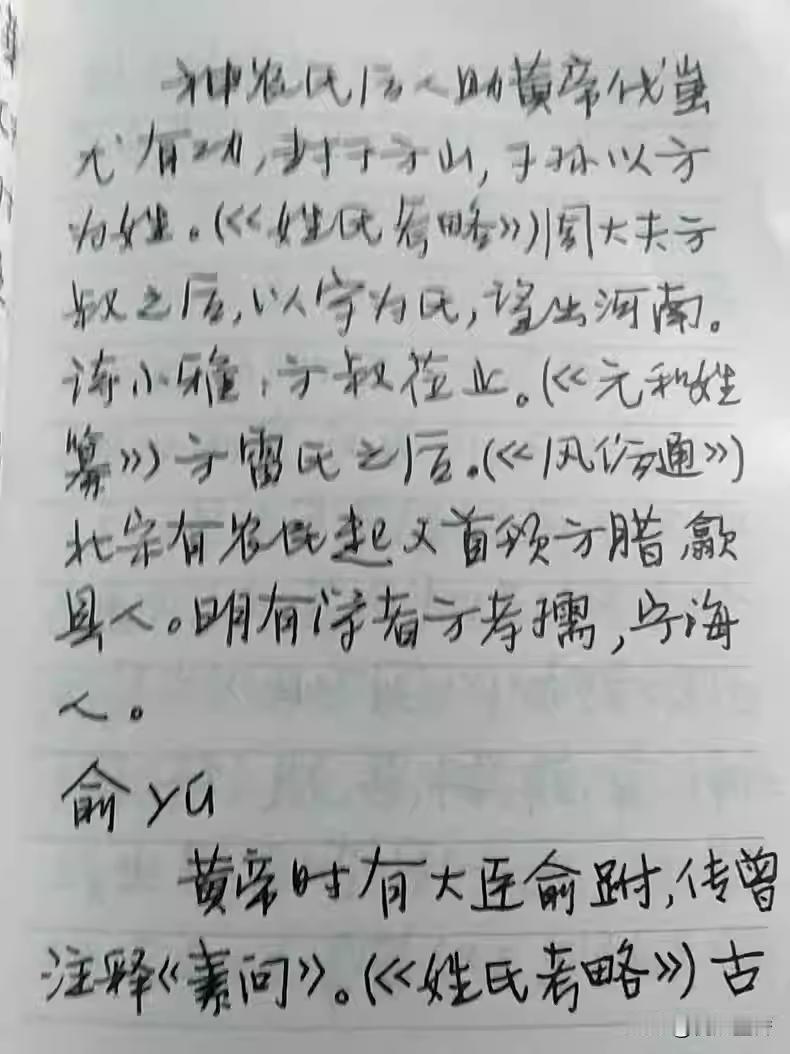 神农氏后人助黄帝伐蚩
尤有功,封于方山,子孙以方
为姓。(《姓氏考略》)周大夫方
叔之后,以字为氏,望出河南。
诗小雅:方叔莅止。(《元和姓
纂》)方雷氏之后。(《风俗通》)
北宋有农民起义首领方腊,歙
县人。明有学者方孝孺,宁海
人。
俞 yú
黄帝时有大臣俞跗,传曾
注释《素问》。(《姓氏考略》)古